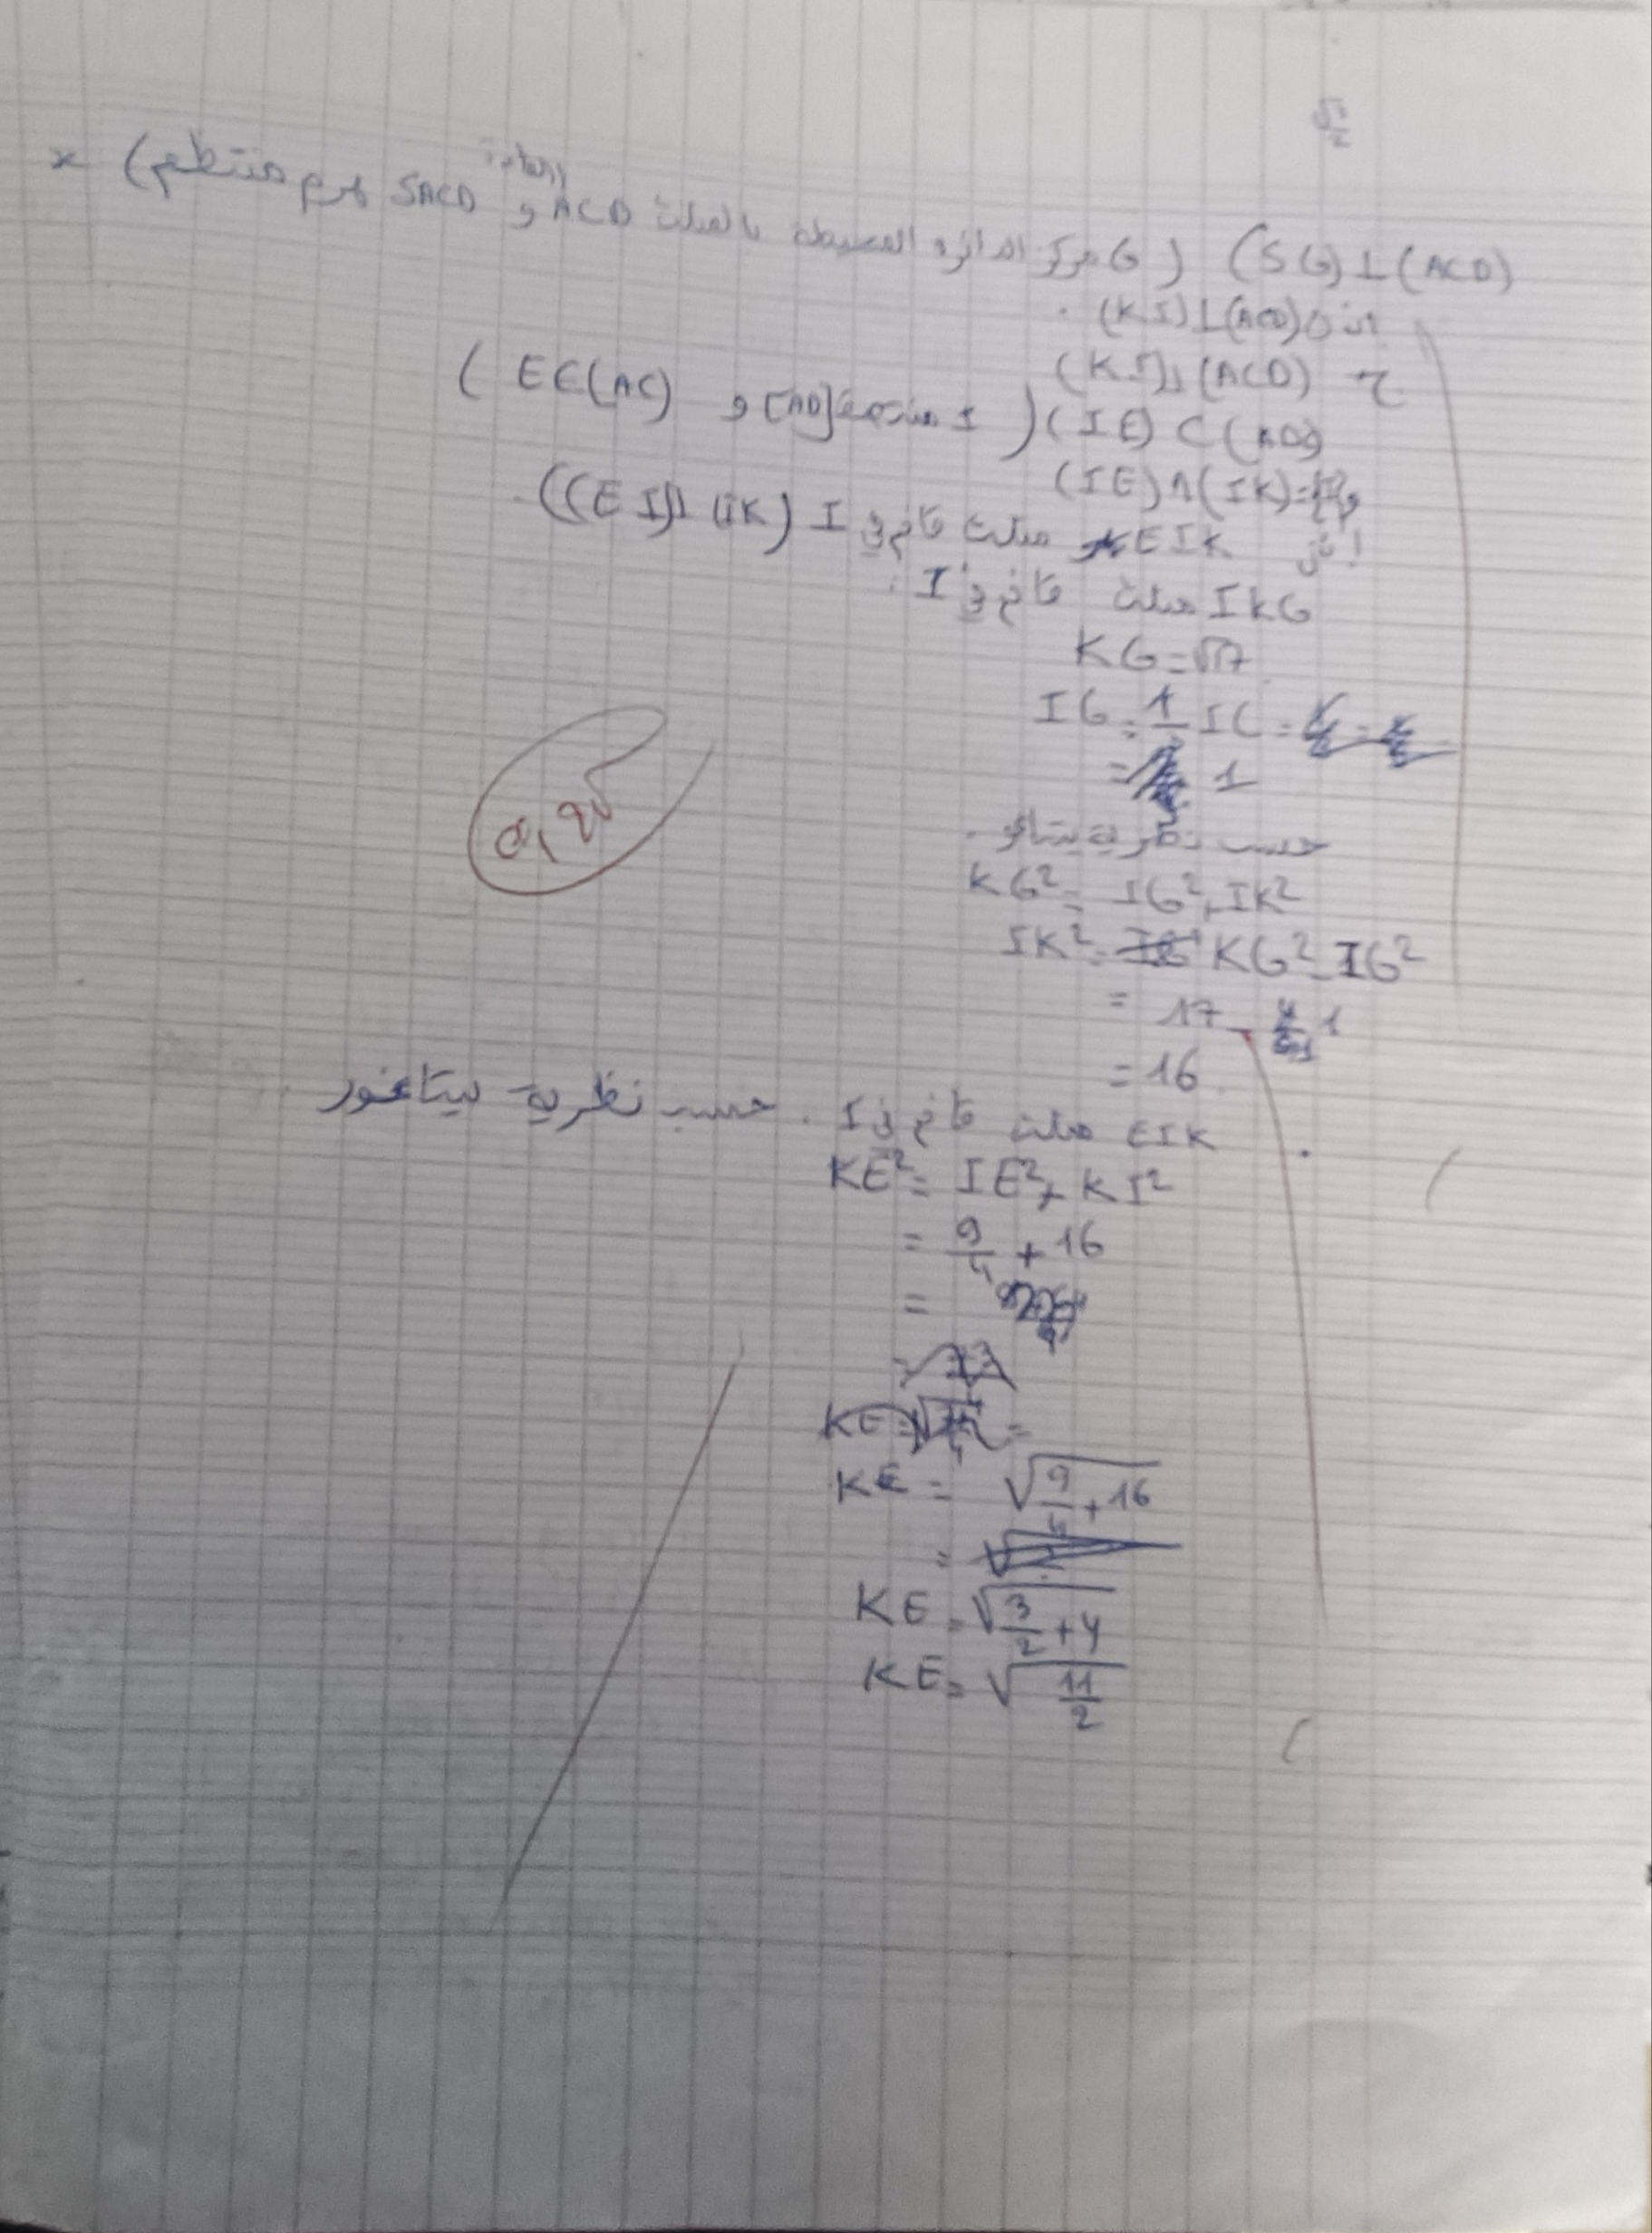 (SG)⊥(ACD) (G مركز الدائرة المحيطة بالمثلث ACD و SACD هرم منتظم) ×
إذن (KI)⊥(ACD).
(KI)⊥(ACD)
(IE)⊂(ACD) (I منتصف [AD] و E∈(AC))
(IE)∩(IK)={I}
إذن EIK مثلث قائم في I ((EI)⊥(IK))
IKG مثلث قائم في I.
KG=√17
IG=1/3 IC=
= 1
حسب نظرية بيتاغور.
KG²= IG²+IK²
IK²= KG²-IG²
= 17 - 1
= 16
EIK مثلث قائم في I. حسب نظرية بيتاغور
KE²= IE²+ KI²
= 9/4 + 16
=
KE =
KE = √(9/4 + 16)
=
KE = √(3/2 + 4)
KE = √(11/2)